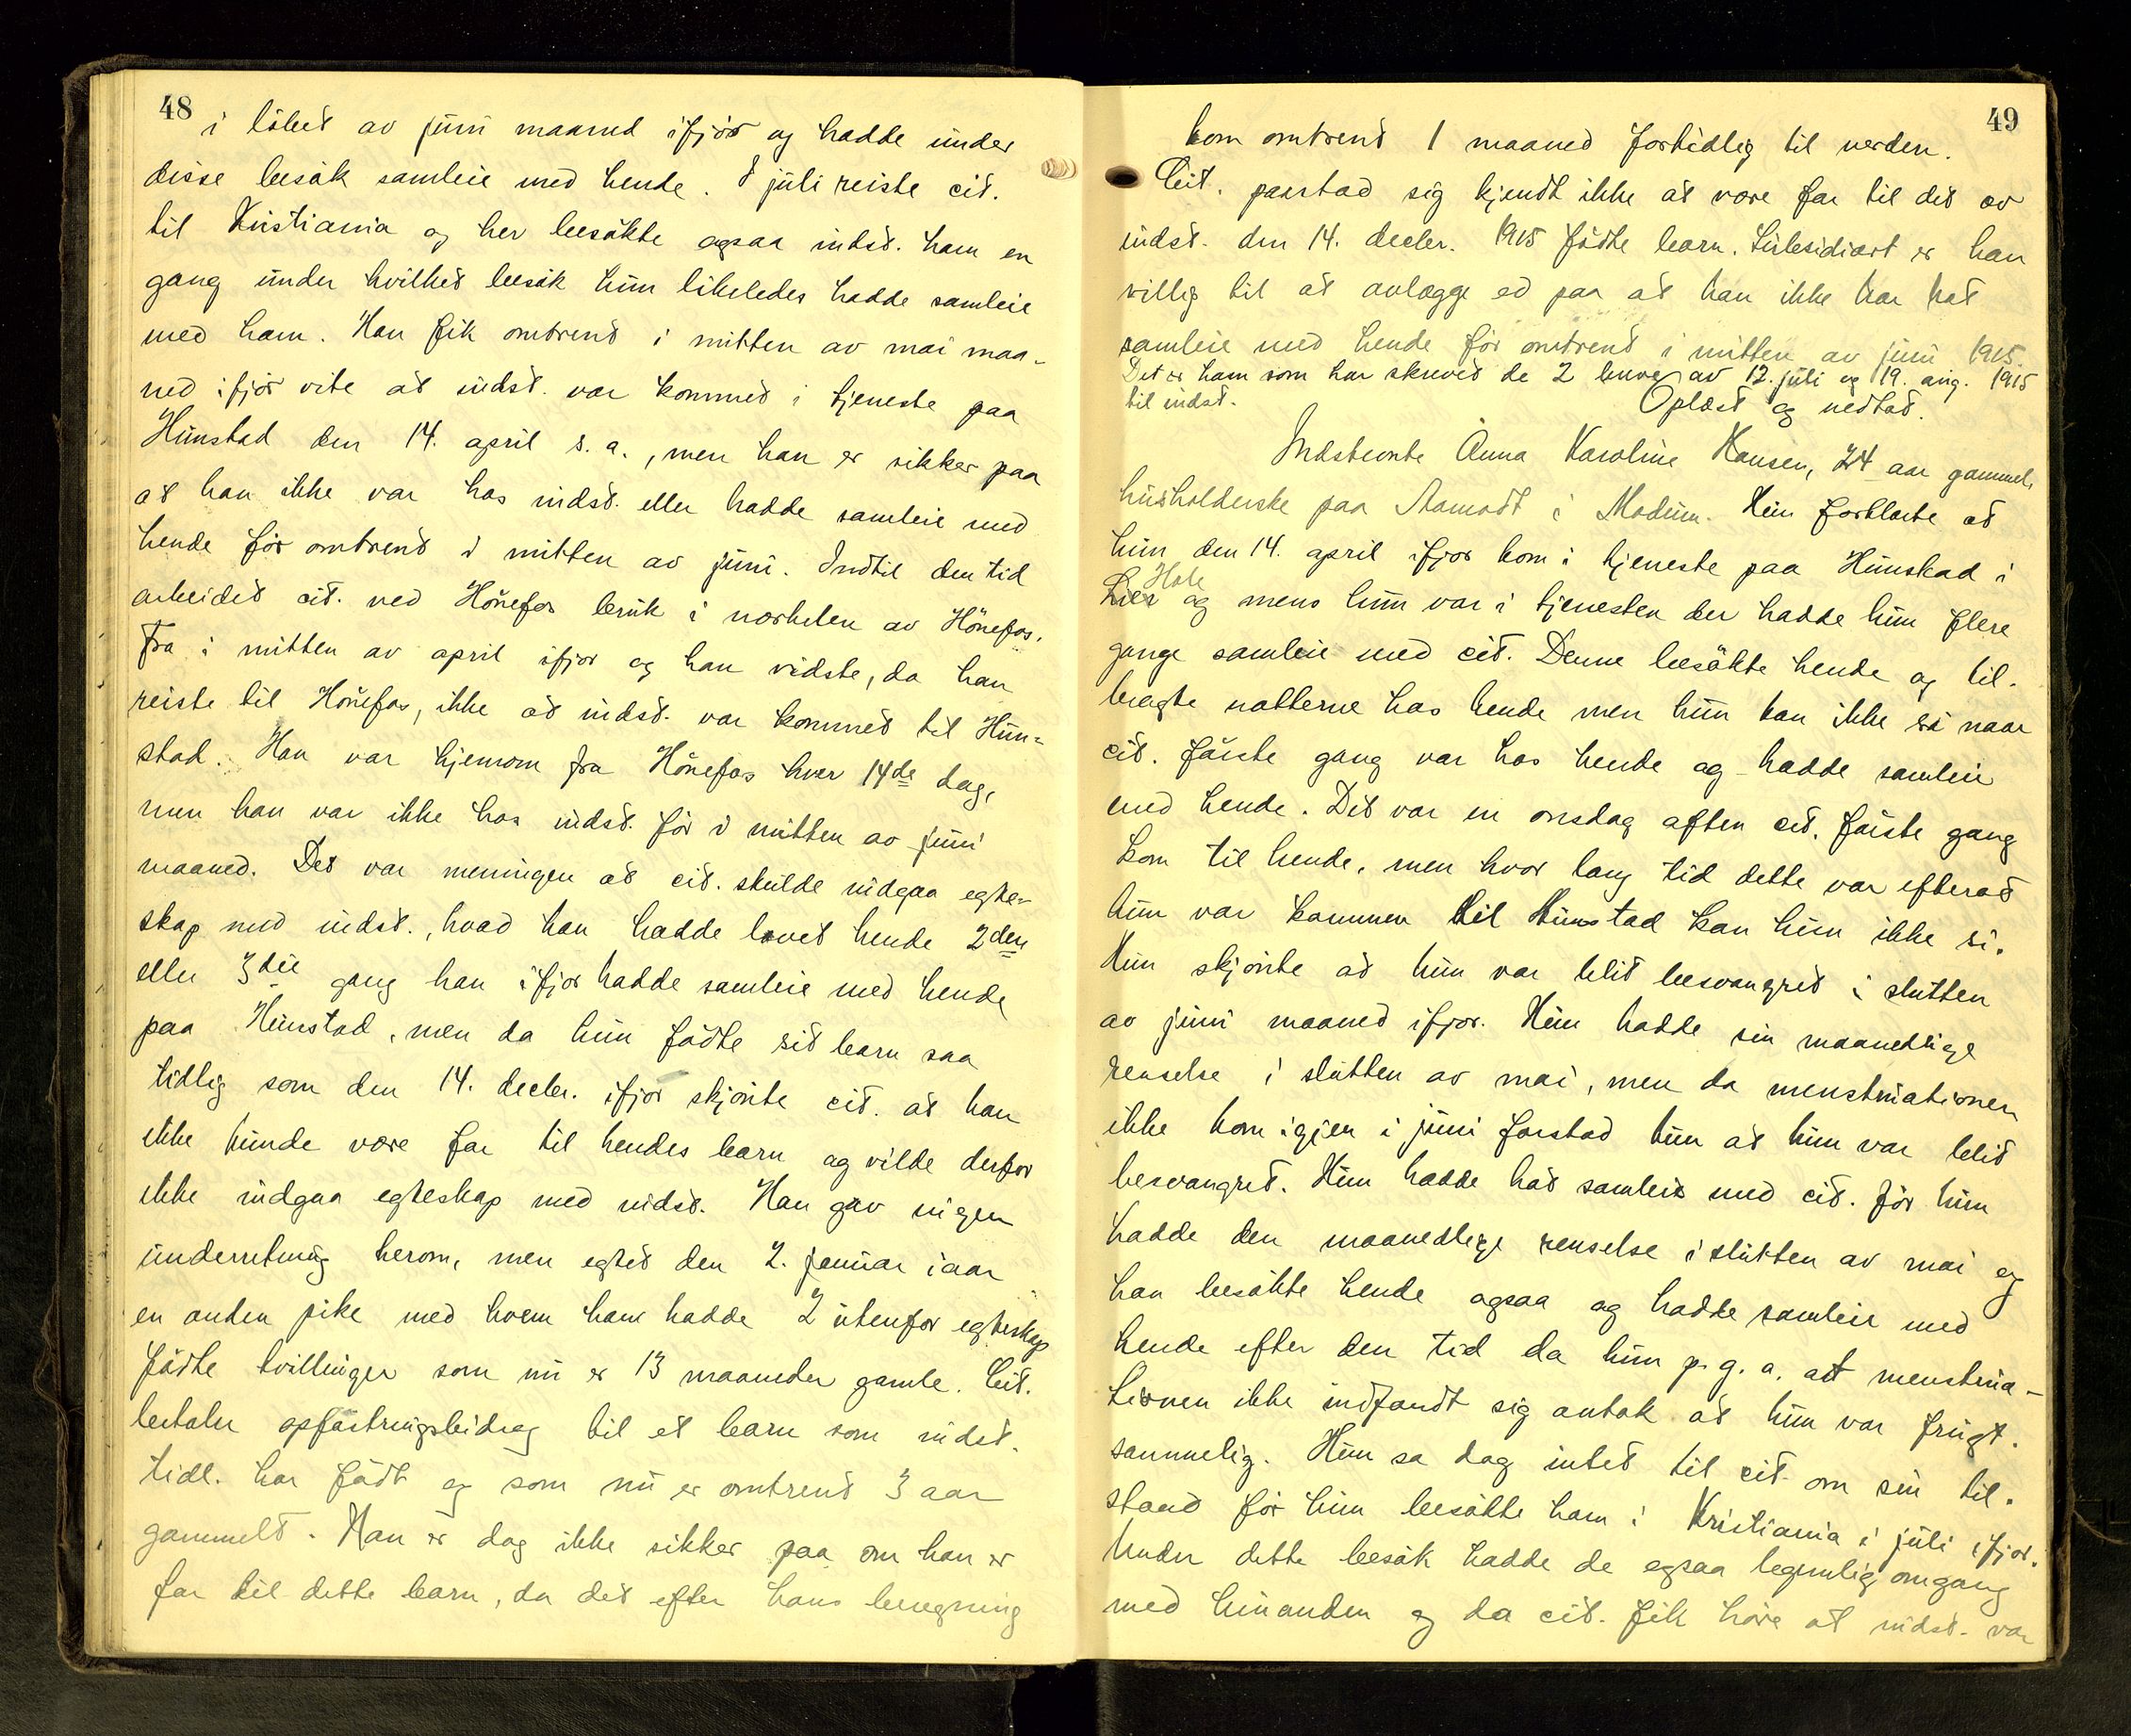 48
i løbet av juni maaned ifjor og hadde under
disse besøk samleie med hende. I juli reiste cit.
til Kristiania og her besøkte ogsaa indst. ham en
gang under hvilket besøk hun likeledes hadde samleie
med ham. Han fik omtrent i mitten av mai maa-
ned ifjor vite at indst. var kommet i tjeneste paa
Hunstad den 14. april s. a., men han er sikker paa
at han ikke var hos indst. eller hadde samleie med
hende før omtrent i mitten av juni. Indtil den tid
arbeidet cit. ved Hønefos bruk i norhelen av Hønefos.
Fra i mitten av april ifjor og han vidste, da han
reiste til Hønefos, ikke at indst. var kommet til Hun-
stad. Han var hjemom fra Hønefos hver 14de dag,
men han var ikke hos indst. før i mitten av juni
maaned. Det var meningen at cit. skulde indgaa egte-
skap med indst., hvad han hadde lovet hende 2den
eller 3die gang han ifjor hadde samleie med hende
paa Hunstad, men da hun fødte sit barn saa
tidlig som den 14. decbr. ifjor skjønte cit. at han
ikke kunde være far til hendes barn og vilde derfor
ikke indgaa egteskap med indst. Han gav ingen
underretning herom, men egtet den 2. januar iaar
en anden pike med hvem han hadde 2 utenfor egteskap
fødte tvillinger som nu er 13 maaneder gamle. Cit.
betaler opfostringsbidrag til et barn som indst.
tidl. har født og som nu er omtrent 3 aar
gammelt. Han er dog ikke sikker paa om han er
far til dette barn, da det efter hans beregning
49
kom omtrent 1 maaned fortidlig til verden.
Cit. paastod sig kjendt ikke at være far til det av
indst. den 14. decbr. 1915 fødte barn. Subsidiært er han
villig til at avlægge ed paa at han ikke har hat
samleie med hende før omtrent i mitten av juni 1915.
Det er ham som har skrevet de 2 breve av 12. juli og 19. aug. 1915
til indst.
Oplæst og vedtat.
Indstevnte Anna Karoline Hansen, 24 aar gammel,
husholderske paa Aamodt i Modum. Hun forklarte at
hun den 14. april ifjor kom i tjeneste paa Hunstad i
Hole
Lier og mens hun var i tjenesten der hadde hun flere
gange samleie med cit. Denne besøkte hende og til-
bragte nætterne hos hende men hun kan ikke si naar
cit. første gang var hos hende og hadde samleie
med hende. Det var en onsdag aften cit. første gang
kom til hende, men hvor lang tid dette var efterat
hun var kommen til Hunstad kan hun ikke si.
Hun skjønte at hun var blit besvangret i slutten
av juni maaned ifjor. Hun hadde sin maanedlige
renselse i slutten av mai, men da menstruationen
ikke kom igjen i juni forstod hun at hun var blit
besvangret. Hun hadde hat samleie med cit. før hun
hadde den maanedlige renselse i slutten av mai og
han besøkte hende ogsaa og hadde samleie med
hende efter den tid da hun p. g. a. at menstrua-
tionen ikke indfandt sig antok at hun var frugt-
sommelig. Hun sa dog intet til cit. om sin til-
stand før hun besøkte ham i Kristiania i juli ifjor.
Under dette besøk hadde de ogsaa legemlig omgang
med hinanden og da cit. fik høre at indst. var